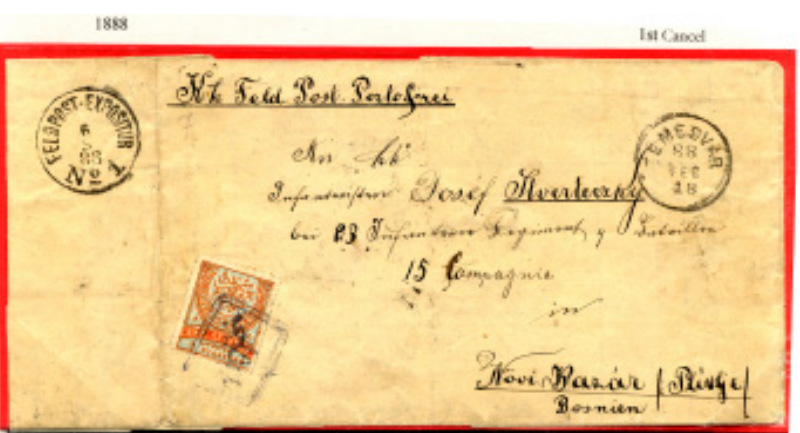 1888
1st Cancel
Kk Feld Post. Portofrei
FELDPOST-EXPOSITUR
6
No 1
TEMESVÁR
88
18
An kk
Infanteristen Josef
bei 83 Infanterie Regiment, Bataillon
15 Compagnie
in
Novi Bazár / Plevlje /
Bosnien